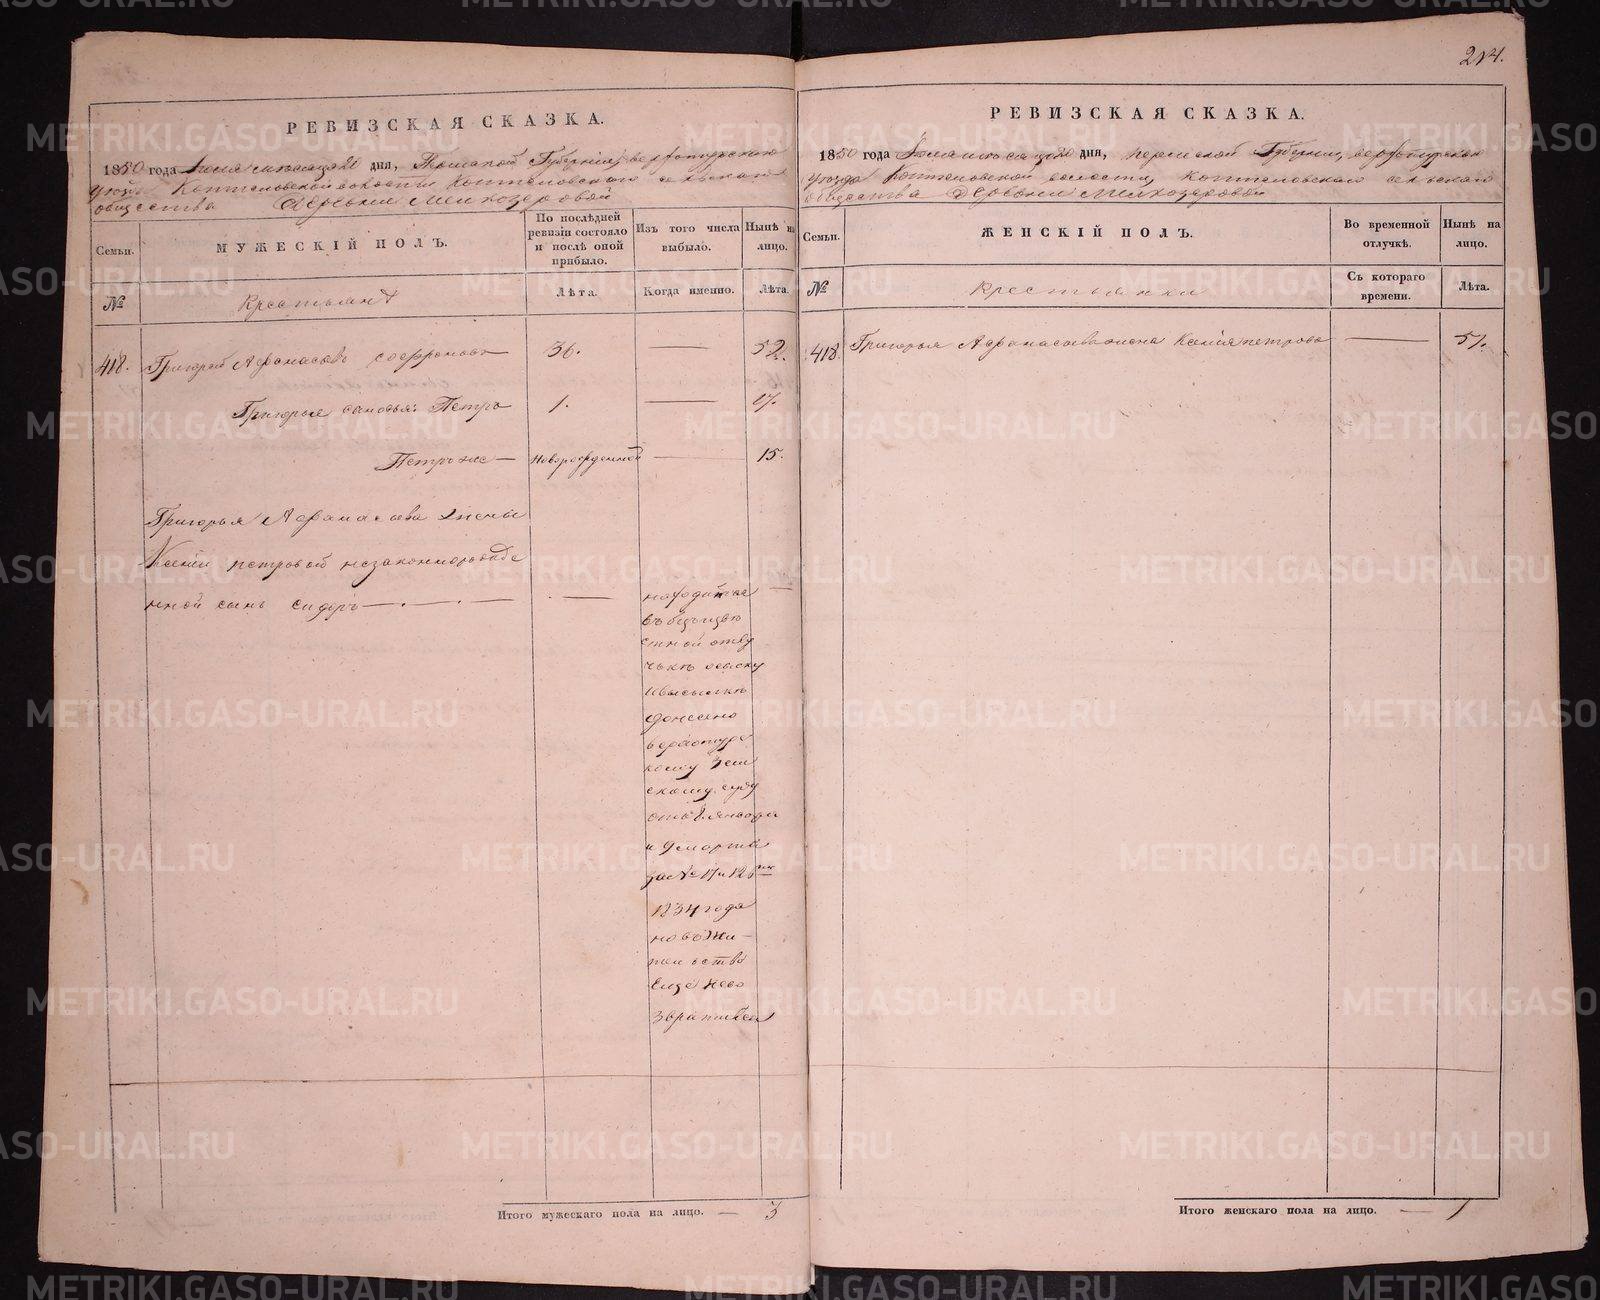 214.
РЕВИЗСКАЯ СКАЗКА.
1850 года Июня месяца 20 дня, Пермской Губернии, верхотурскаго
уезда Коптеловской волости Коптеловскаго сельскаго
общества Деревни Мелкозеровой
Семьи. МУЖЕСКІЙ ПОЛЪ. По послѣдней ревизіи состояло и послѣ оной прибыло. Изъ того числа выбыло. Нынѣ на лицо.
№ Крестьянъ Лѣта. Когда именно. Лѣта.
418. Григорей Афанасьевъ софроновъ 36. — 52.
Григорья сыновья: Петръ 1. — 17.
Петръ же — Новорожденной — 15.
Григорья Афанасьева жены
Ксеніи петровой незаконнорожде
нной сынъ сидоръ — . — . — —
находится
въ безъизве
стной отлу
чкѣ о сыску
и высылкѣ
донесено
верхотурс
кому Зем
скому суду
отъ 8 января
и 9 марта
за № 17 и 126
1834 года
но въ жи-
тельство
еще нево
звратился
Итого мужескаго пола на лицо. — 3
РЕВИЗСКАЯ СКАЗКА.
1850 года Июня месяца 20 дня, пермской Губернии, верхотурскаго
уезда Коптеловской волости, Коптеловскаго сельскаго
общества Деревни Мелкозеровой
Семьи. ЖЕНСКІЙ ПОЛЪ. Во временной отлучкѣ. Нынѣ на лицо.
№ Крестьянки Съ котораго времени. Лѣта.
418 Григорья Афанасьева жена Ксенія петрова — 51.
Итого женскаго пола на лицо. — 1
METRIKI.GASO-URAL.RU